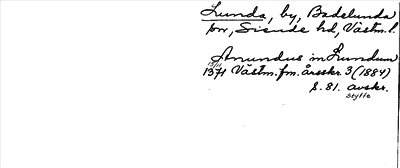 Lunda, by, Badelunda
sn, Siende hd, Västm. l.
Anundus in Lundum
1371 Västm. fm. årsskr 3 (1884)
s. 81. avskr.
Styffe